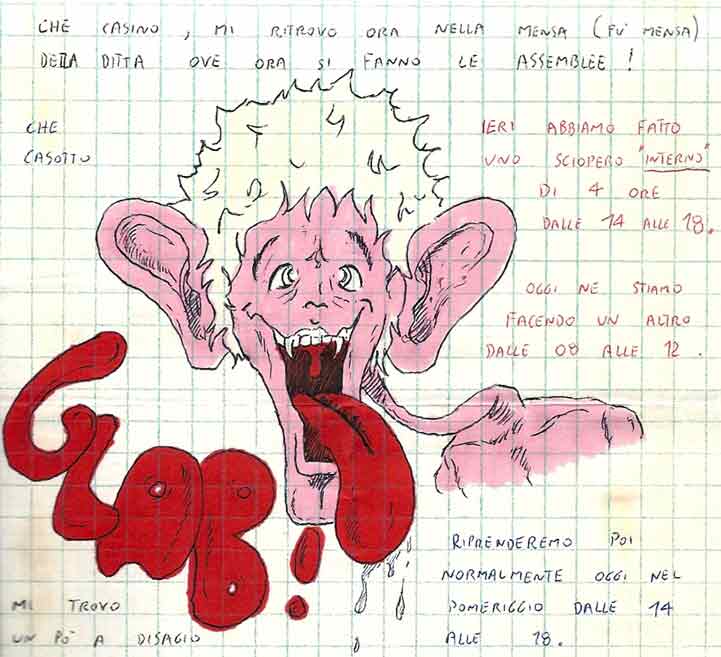 CHE CASINO, MI RITROVO ORA NELLA MENSA (FU' MENSA)
DELLA DITTA OVE ORA SI FANNO LE ASSEMBLEE!
CHE
CASOTTO
IERI ABBIAMO FATTO
UNO SCIOPERO "INTERNO"
DI 4 ORE
DALLE 14 ALLE 18.
OGGI NE STIAMO
FACENDO UN ALTRO
DALLE 08 ALLE 12.
GLOB!
RIPRENDEREMO POI
NORMALMENTE OGGI NEL
POMERIGGIO DALLE 14
ALLE 18.
MI TROVO
UN PO' A DISAGIO